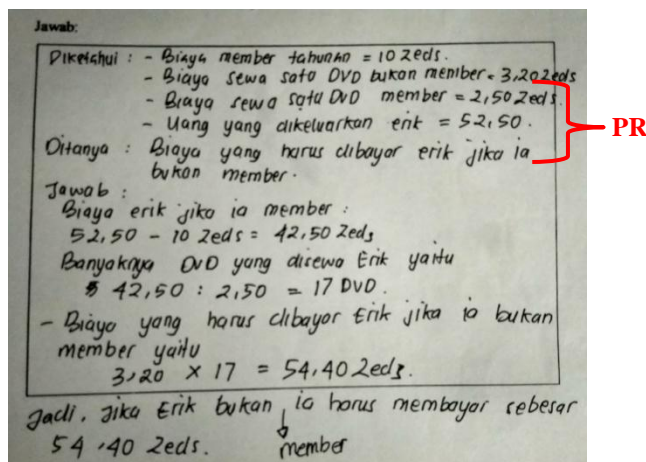 Jawab:
Diketahui : - Biaya member tahunan = 10 Zeds.
- Biaya sewa satu DVD bukan member = 3,20 Zeds
- Biaya sewa satu DVD member = 2,50 Zeds.
- Uang yang dikeluarkan erik = 52,50.
PR
Ditanya : Biaya yang harus dibayar erik jika ia
bukan member.
Jawab :
Biaya erik jika ia member :
52,50 - 10 Zeds = 42,50 Zeds
Banyaknya DVD yang disewa Erik yaitu
42,50 : 2,50 = 17 DVD.
- Biaya yang harus dibayar Erik jika ia bukan
member yaitu
3,20 × 17 = 54,40 Zeds.
Jadi, jika Erik bukan ia harus membayar sebesar
54,40 Zeds. member